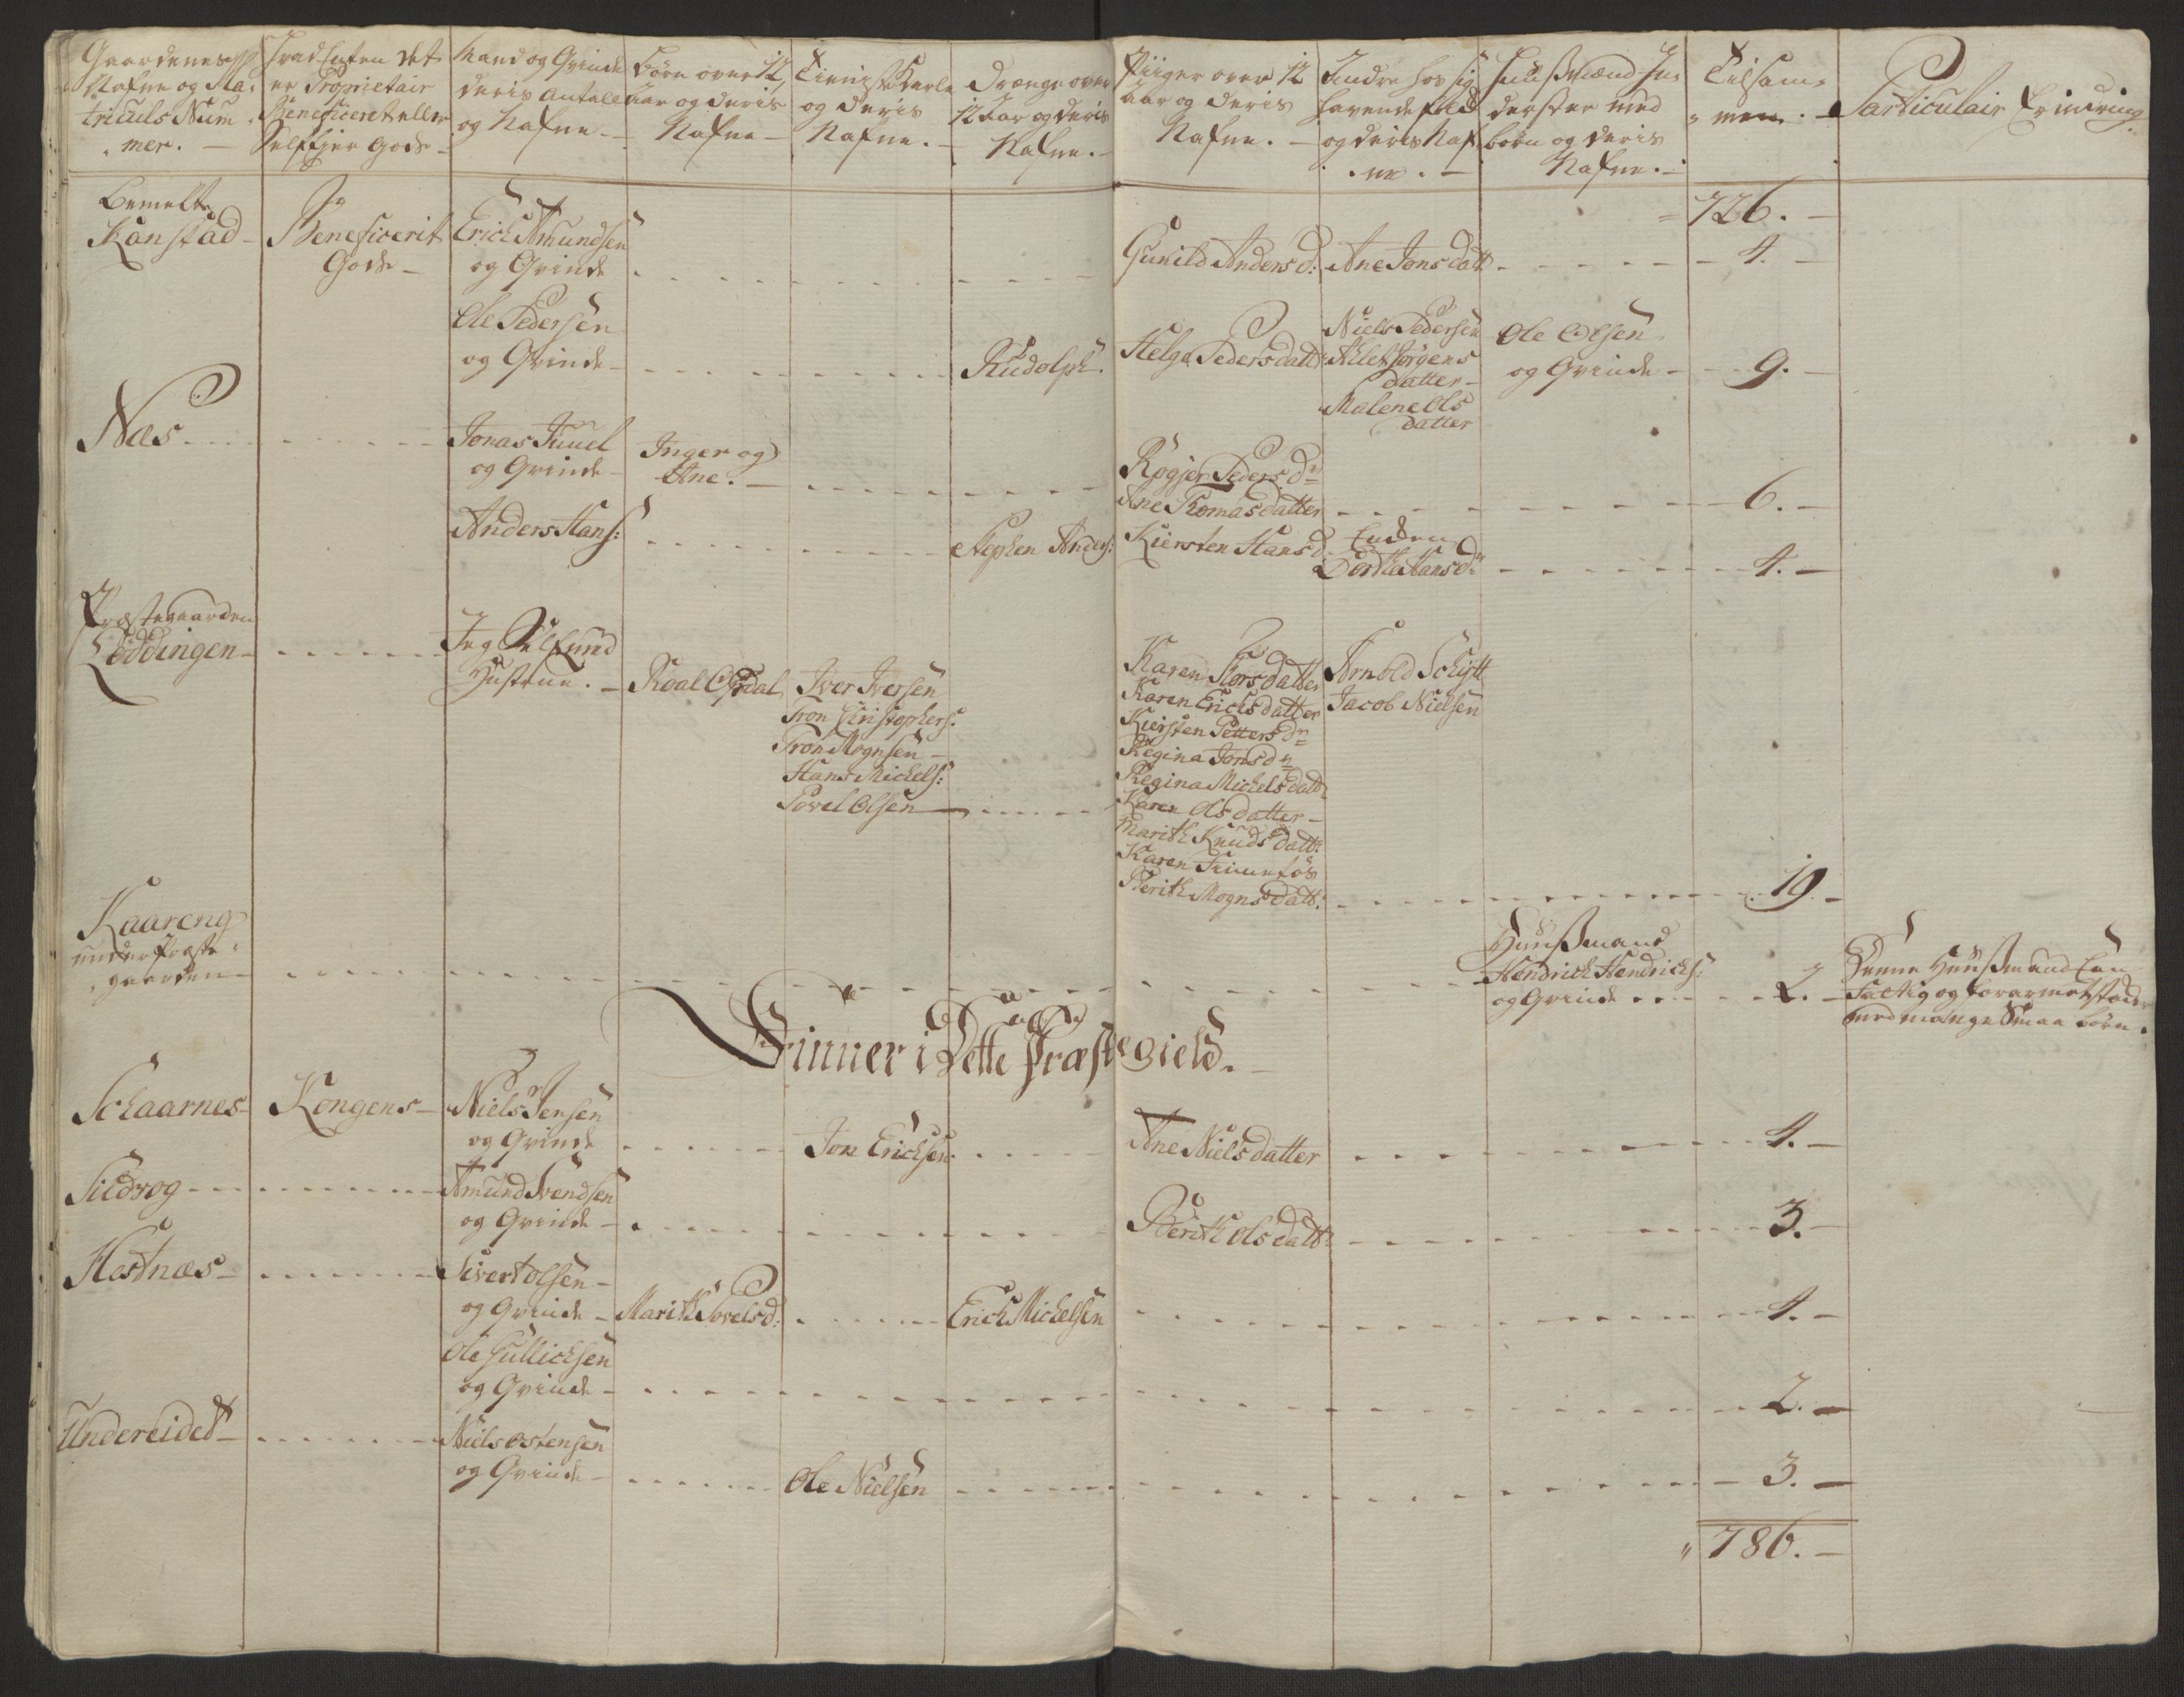 Gaardenes
Nafne og Ma-
triculs Num
mer. -
Hvad Enten det
er Proprietair
Beneficeret eller
Selfejer Gods -
Mand og Qvinde
deris Antall
og Nafne. -
Børn over 12
Aar og deris
Nafne -
Tieniste Karle
og deris
Nafne. -
Drænge over
12 Aar og deris
Nafne. -
Piiger over 12
Aar og deris
Nafne. -
Andre hos sig
havende folck
og deris Naf
ne. -
Huusmænd In-
derster med
børn og deris
Nafne. -
Tilsam-
men. -
Particulair Erindring
726. -
Bemelte
Kanstad -
Beneficerit
Gods -
Erich Amundsen
og Qvinde
Gunild Anders d:
Ane Jons datt
4. -
Ole Pedersen
og Qvinde -
Rudolph.
Helga Peders datt:
Niels Pedersen
Allet Jørgens
datter -
Malene Ols
datter
Ole Olsen
og Qvinde -
9. -
Næs
Jonas Juul
og Qvinde -
Inger og
Ane. -
Røgjer Peders dr
Ane Thomas datter
6. -
Anders Hans:
Stephen Anders:
Kiersten Hans d.
Enken
Dorthe Hans dr
4. -
Præstegaarden
Löddingen -
Jeg Self med
Hustrue. -
Roal Opdal
Iver Iversen
Tron Christophers:
Tron Mognsen -
Hans Michels:
Povel Olsen
Karen Thorsdatter
Karen Erichs datter
Kiersten Petters dr
Regina Jons dr
Regina Michels datt:
Karen Ols datter -
Marith Knuds datt:
Karen Trinnefös
Berith Mogns datt:
Arnold Schytt
Jacob Nielsen
19. -
Kaareng
under Præste-
gaarden -
Huusmand
Hendrich Hendrichs:
og Qvinde
2. -
Denne Huusmand Er
fattig og forarmet
med mange Smaa børn.
Finner i Dette Præstegield. -
Schaarnes -
Kongens -
Niels Jensen
og Qvinde
Jon Erichsen
Ane Niels datter
4. -
Sildvog
Amund Svendsen
og Qvinde -
Berith Ols datt:
3. -
Hestnæs -
Sivert Olsen -
og Qvinde -
Marith Povels d:
Erich Michelsen
4. -
Ole Gullichsen
og Qvinde -
2. -
Undereidet -
Niels Ostensen
og Qvinde -
Ole Nielsen
3. -
786. -